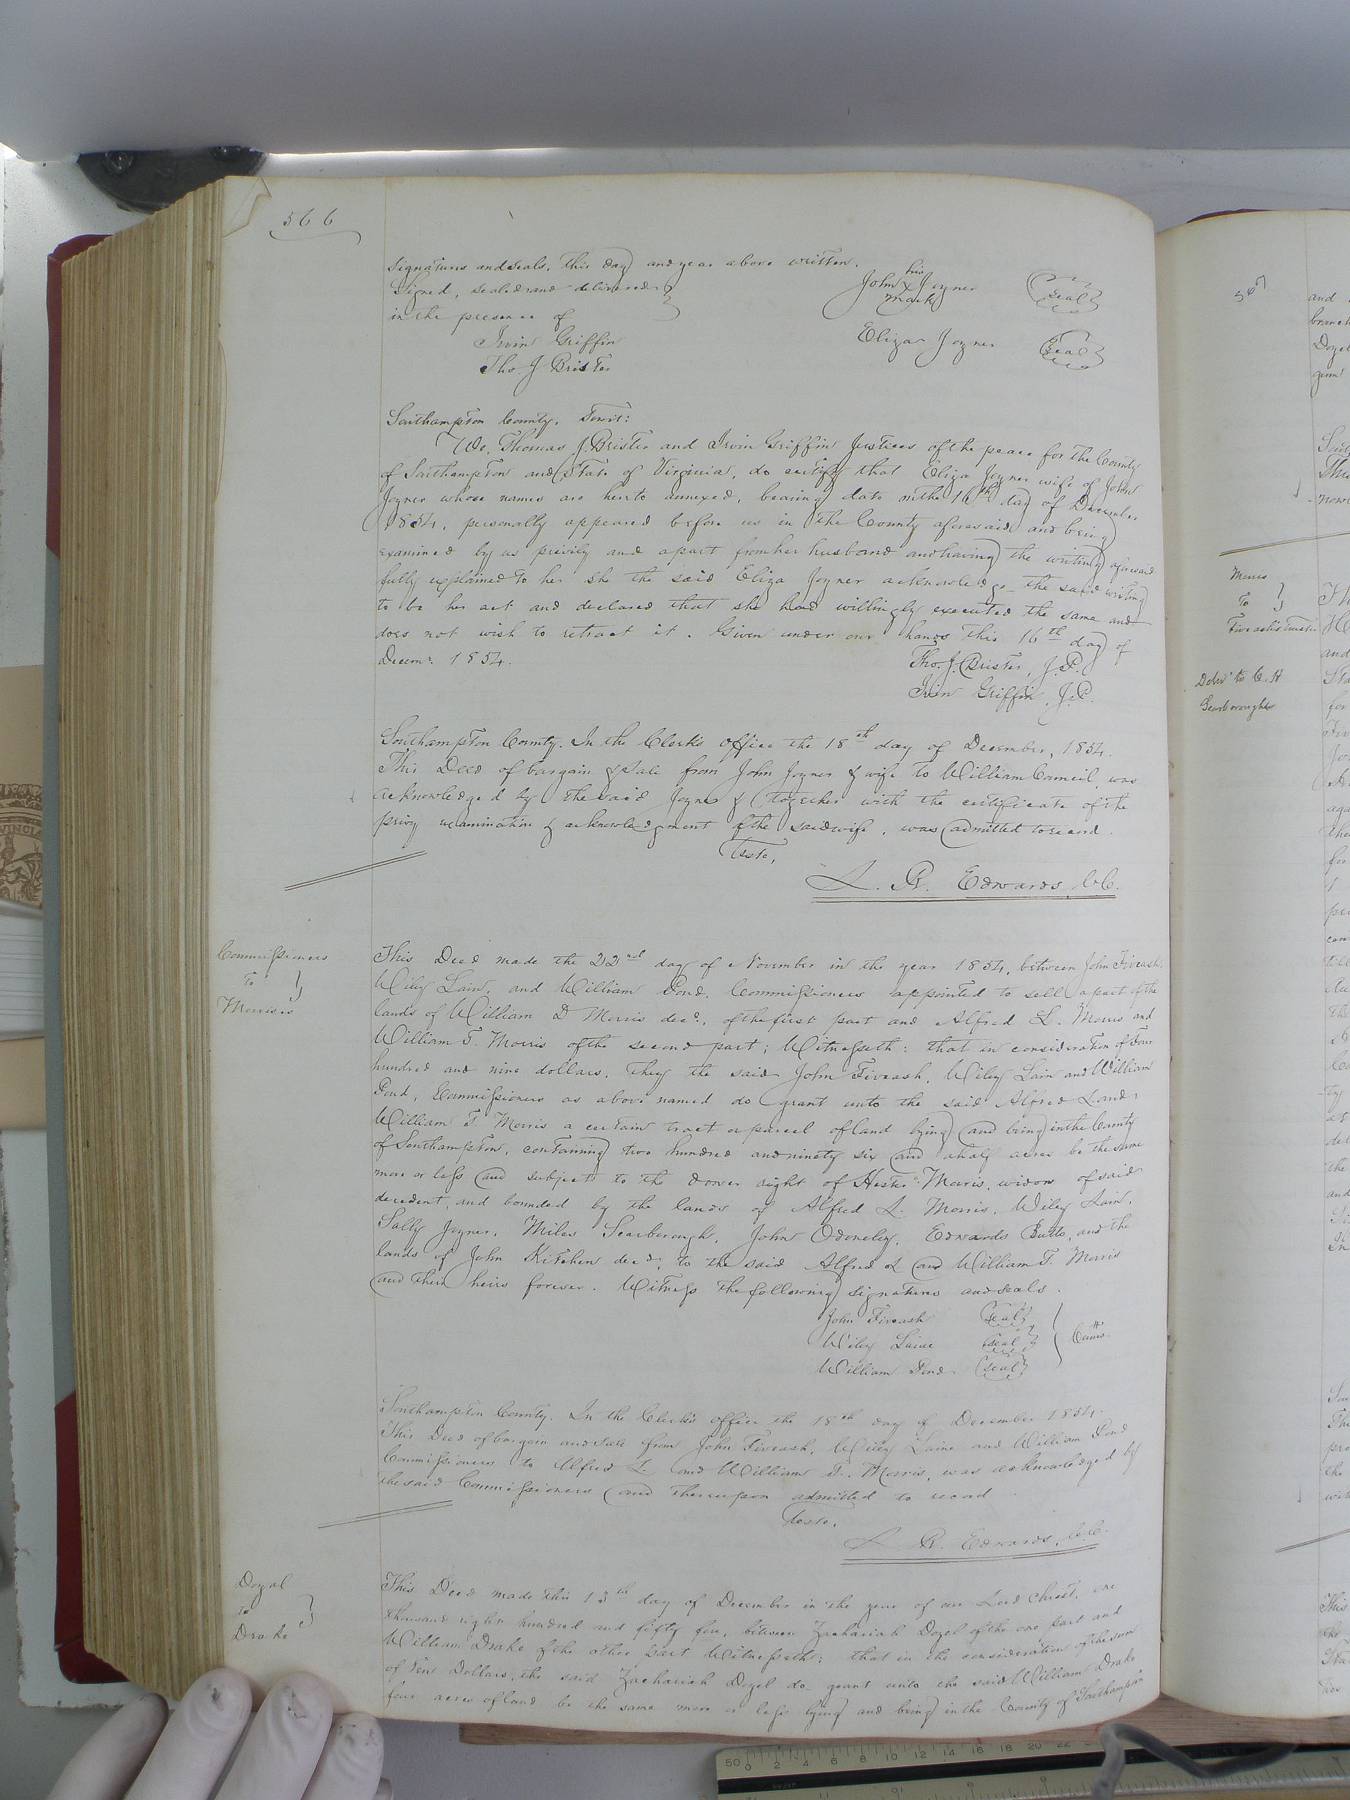 566
Signatures and seals, this day and year above written.
Signed, sealed and delivered
in the presence of
Irvin Griffin
Tho. J Brister
John his X mark Joyner (Seal)
Eliza Joyner (Seal)
Southampton County, Towit:
We, Thomas J. Brister and Irvin Griffin Justices of the peace for the County
of Southampton and State of Virginia, do certify that Eliza Joyner wife of John
Joyner whose names are hereto annexed, bearing date on the 16th day of December
1854, personally appeared before us in the County aforesaid and being
examined by us privily and apart from her husband and having the writing aforesaid
fully explained to her she the said Eliza Joyner acknowledge the said writing
to be her act and declared that she had willingly executed the same and
does not wish to retract it. Given under our hands this 16th day of
Decemr. 1854.
Tho. J. Brister, J.P.
Irvin Griffin, J.P.
Southampton County. In the Clerk's Office the 18th day of December, 1854.
This Deed of bargain & sale from John Joyner & wife to William Council, was
acknowledged by the said Joyner & together with the certificate of the
privy examination & acknowledgment of the said wife, was admitted to record.
Teste,
L. R. Edwards, C.C.
Commissioners
To
Morris's
This Deed made the 22nd day of November in the year 1854, between John Fiveash,
Wiley Lain, and William Pond, Commissioners appointed to sell a part of the
lands of William D Morris decd., of the first part and Alfred L. Morris and
William T. Morris of the second part; Witnesseth: that in consideration of Four
hundred and nine dollars, they the said John Fiveash, Wiley Lain and William
Pond, Commissioners as above named do grant unto the said Alfred L and
William T Morris a certain tract or parcel of land lying and being in the County
of Southampton, containing two hundred and ninety six and a half acres be the same
more or less and subject to the dower right of Hester Morris, widow of said
decedent, and bounded by the lands of Alfred L. Morris, Wiley Lain,
Sally Joyner, Miles Scarborough, John Odoneley, Edwards Butts, and the
lands of John Kitchen decd; to the said Alfred L and William T. Morris
and their heirs forever. Witness the following signatures and seals.
John Fiveash (Seal)
Wiley Laine (Seal) Comrs.
William Pond (Seal)
Southampton County. In the Clerk's office the 18th day of December 1854.
This Deed of bargain and sale from John Fiveash, Wiley Laine and William Pond
Commissioners to Alfred L and William T. Morris, was acknowledged by
the said Commissioners and thereupon admitted to record
Teste,
L. R. Edwards, C.C.
Doyal
to
Drake
This Deed made this 13th day of December in the year of our Lord Christ, one
thousand eight hundred and fifty four, between Zachariah Doyel of the one part and
William Drake of the other part Witnesseth: that in the consideration of the sum
of Dollars, the said Zachariah Doyel do grant unto the said William Drake
four acres of land be the same more or less lying and being in the County of Southampton
567
and
branch
Doyel
Morris
To
Delivd to C. H
Scarborough
and
This
50 0 2 4 6 8 10 12 14 16 18 20 22